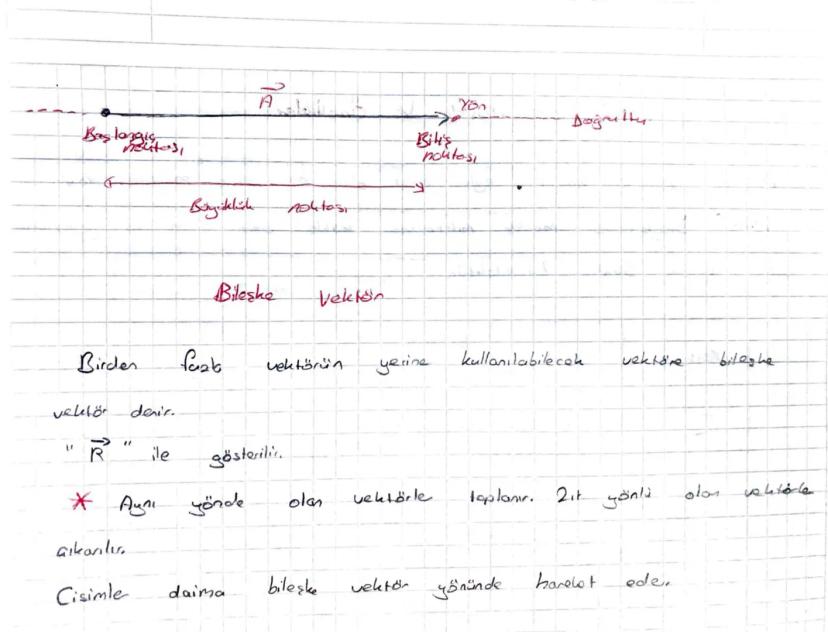 A
Yön
Doğrultu
Başlangıç
noktası
Bitiş
noktası
Büyüklük noktası
Bileşke Vektör
Birden fazla vektörün yerine kullanılabilecek vektöre bileşke
vektör denir.
" R " ile gösterilir.
* Aynı yönde olan vektörle toplanır. Zıt yönlü olan vektörle
çıkarılır.
Cisimle daima bileşke vektör yönünde hareket eder.